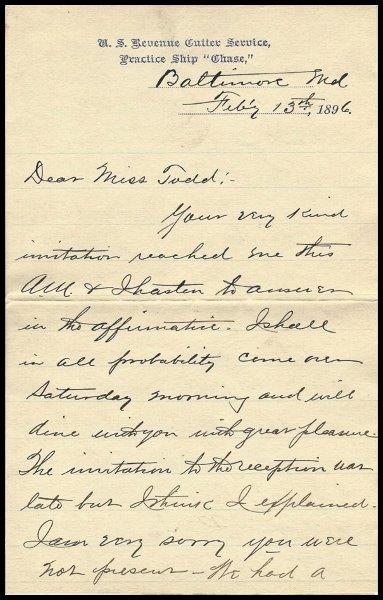 U. S. Revenue Cutter Service,
Practice Ship "Chase,"
Baltimore Md
Feb'y 13th, 1896.
Dear Miss Todd:-
Your very kind
invitation reached me this
A.M. & I hasten to answer
in the affirmative. I shall
in all probability come over
Saturday morning and will
dine with you with great pleasure.
The invitation to the reception was
late but I think I explained.
I am very sorry you were
not present - We had a